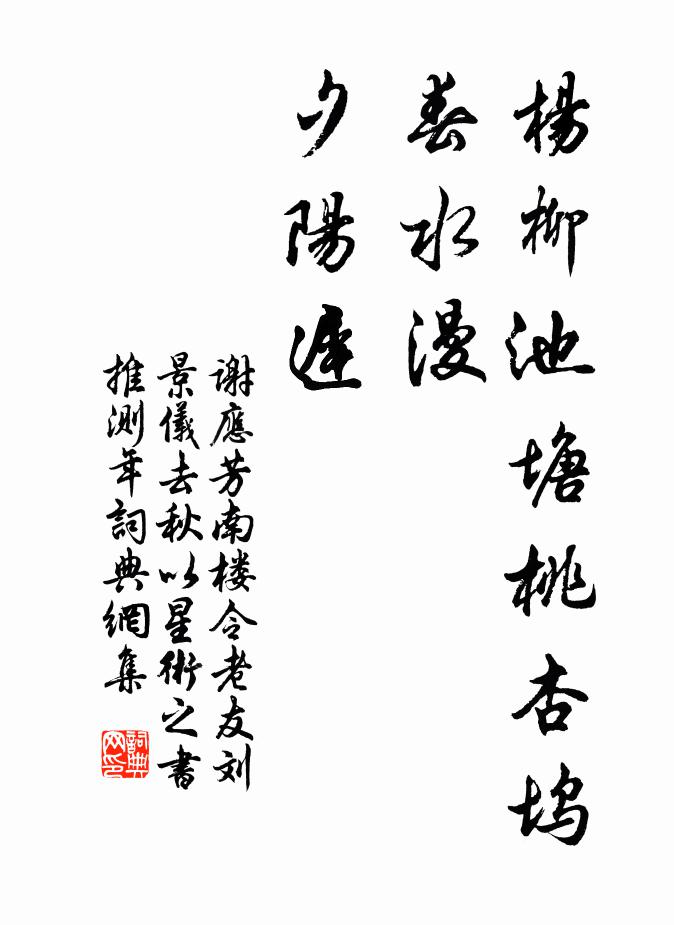 楊柳池塘桃杏塢
春水漫
夕陽遲
谢應芳南楼令老友刘
景儀去秋以星術之書
推测年詞典網集
詞典
网印